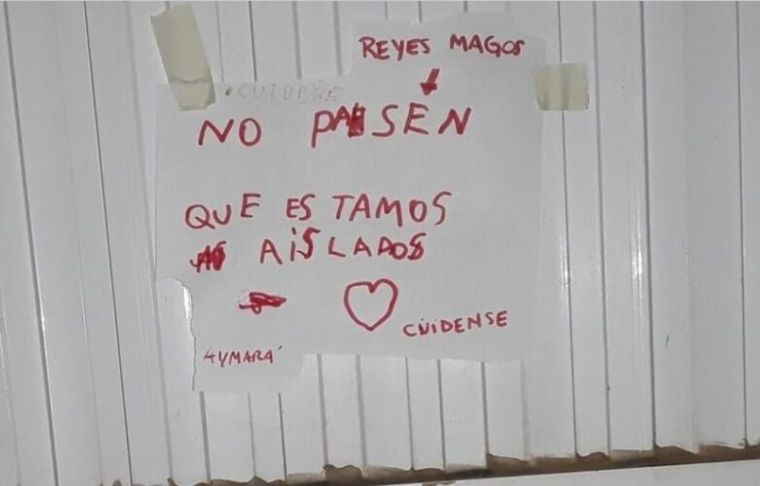 REYES MAGOS
NO PASEN
QUE ESTAMOS
AISLADOS
CUIDENSE
AYMARÁ